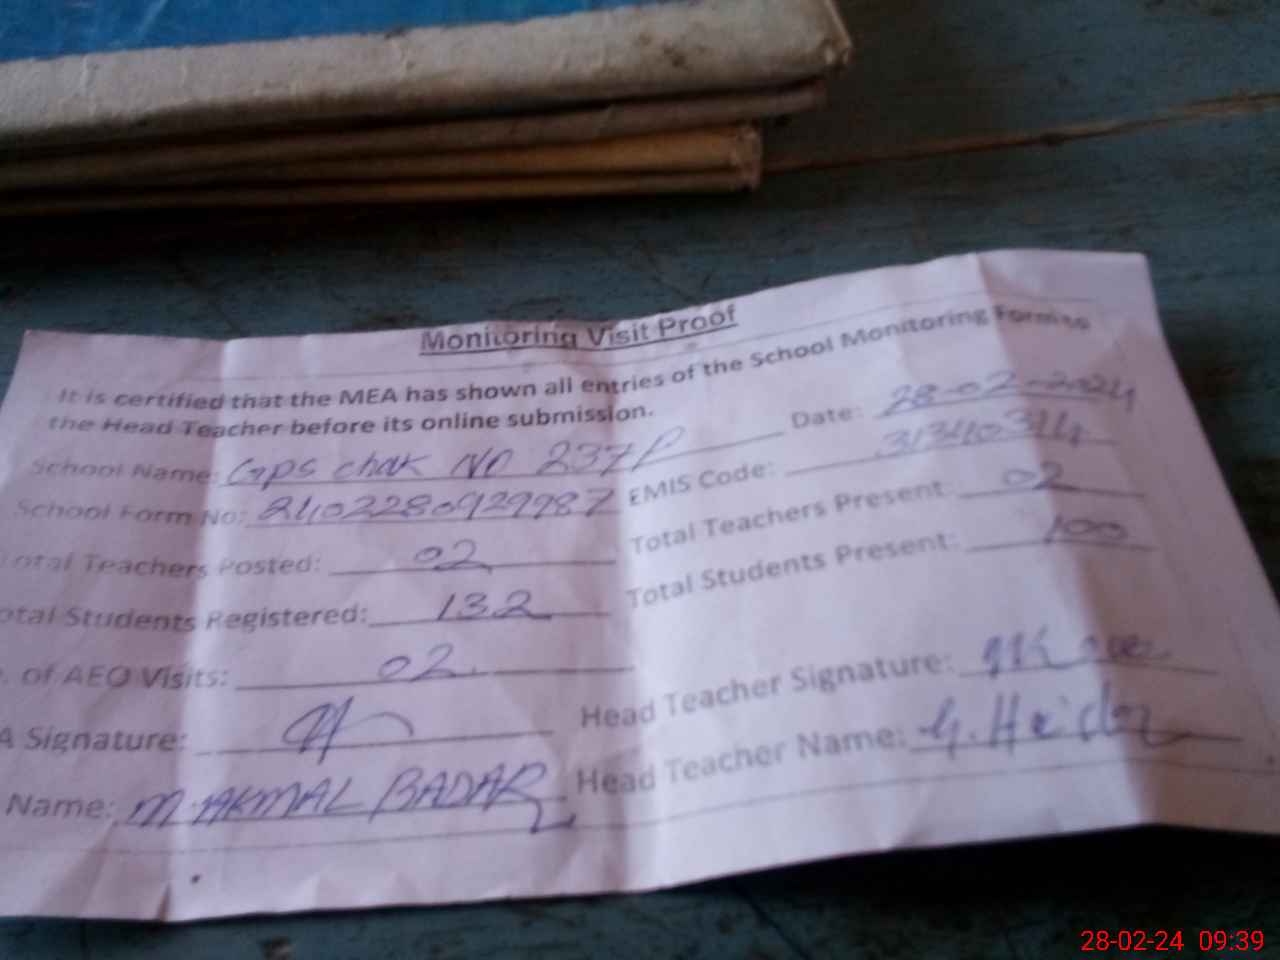 Monitoring Visit Proof
It is certified that the MEA has shown all entries of the School Monitoring Form to
the Head Teacher before its online submission.
Date: 28-02-2024
School Name: GPS chak No 237/P
EMIS Code: 31340314
School Form No: 2402280929987
Total Teachers Present: 02
Total Teachers Posted: 02
Total Students Present: 100
Total Students Registered: 132
. of AEO Visits: 02
Head Teacher Signature:
A Signature:
Head Teacher Name: G. Haider
Name: M. AKMAL BADAR
28-02-24 09:39